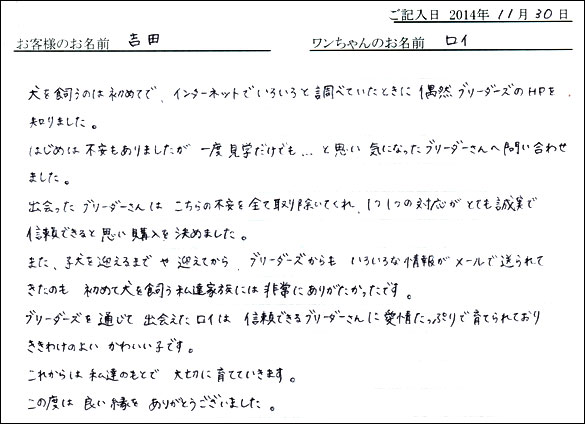 ご記入日 2014年 11月 30日
お客様のお名前 吉田 ワンちゃんのお名前 ロイ
犬を飼うのは初めてで、インターネットでいろいろと調べていたときに偶然ブリーダーズのHPを
知りました。
はじめは不安もありましたが 一度見学だけでも…と思い 気になったブリーダーさんへ問い合わせ
ました。
出会ったブリーダーさんは こちらの不安を全て取り除いてくれ、1つ1つの対応がとても誠実で
信頼できると思い購入を決めました。
また、子犬を迎えるまでや迎えてから、ブリーダーズからも いろいろな情報がメールで送られて
きたのも 初めて犬を飼う私達家族には非常にありがたかったです。
ブリーダーズを通じて 出会えたロイは 信頼できるブリーダーさんに愛情たっぷりで育てられており
ききわけのよい かわいい子です。
これからは私達のもとで 大切に育てていきます。
この度は良い縁をありがとうございました。